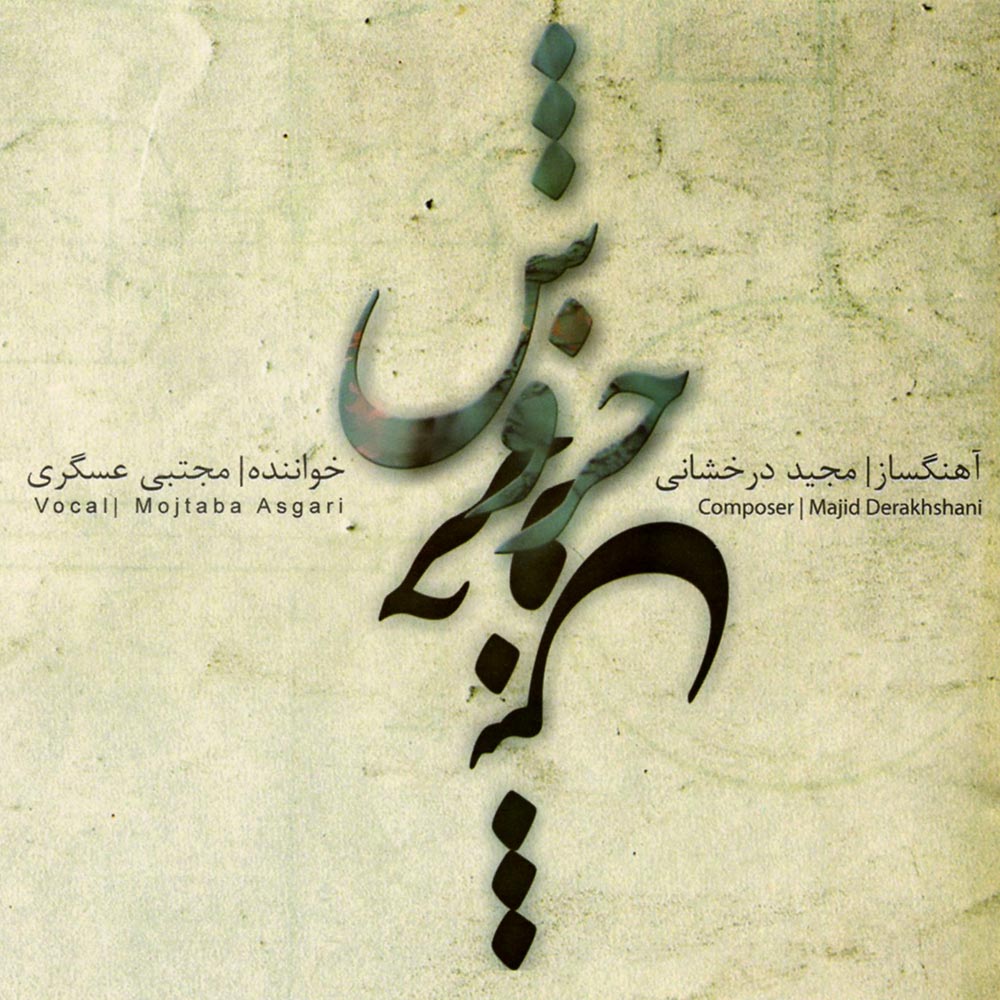 خروش
آهنگساز | مجید درخشانی
Composer | Majid Derakhshani
خواننده | مجتبی عسگری
Vocal| Mojtaba Asgari